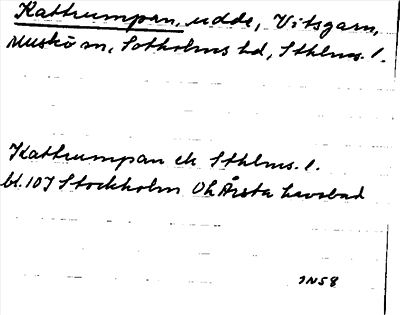 Kattrumpan, udde, Vitsgarn,
Muskö sn, Sotholms hd, Sthlms. l.
Kattrumpan ek Sthlms. l.
bl. 107 Stockholm Oh Årsta havsbad
JN58